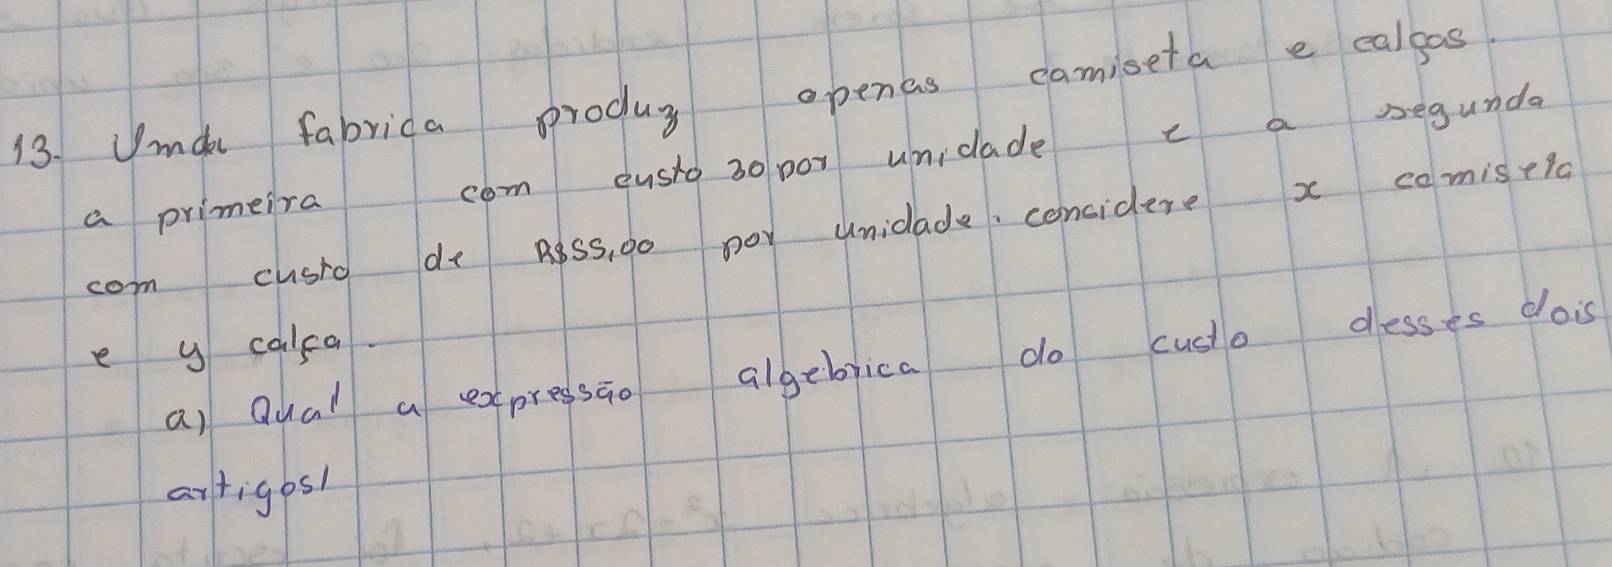 13. Umda fabrica produz apenas camiseta e calças.
a primeira com custo 30 por unidade e a segunda
com custo de R$55,00 por unidade. concidere x camiseta
e y calça.
a) Qual a expressão algebrica do custo desses dois
artigos/